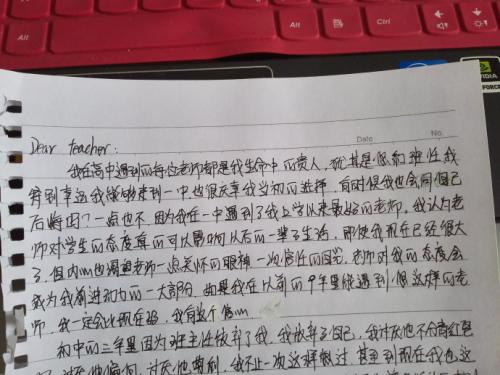 Alt
Alt
Ctrl
NVIDIA
Date
No.
Dear teacher:
我在高中遇到的每位老师都是我生命中的贵人,尤其是您和班任,我
特别幸运我能够来到一中,也很庆幸我当初的选择,有时候我也会问自己
后悔吗?一点也不,因为我在一中遇到了我上学以来最好的老师。我认为老
师对学生的态度真的可以影响以后的一辈子生活,即使我现在已经很大
了,但内心也渴望老师一点关怀的眼神,一次信任的目光,老师对我的态度会
成为我前进动力的一大部分,如果我在以前的9年里能遇到像您这样的老
师,我一定会比现在好,我有这个信心
初中的三年里因为班主任放弃了我,我放弃了自己,我讨厌他不分青红皂
讨厌他偏向,讨厌他势利,我不止一次这样想过,甚至到现在我也这